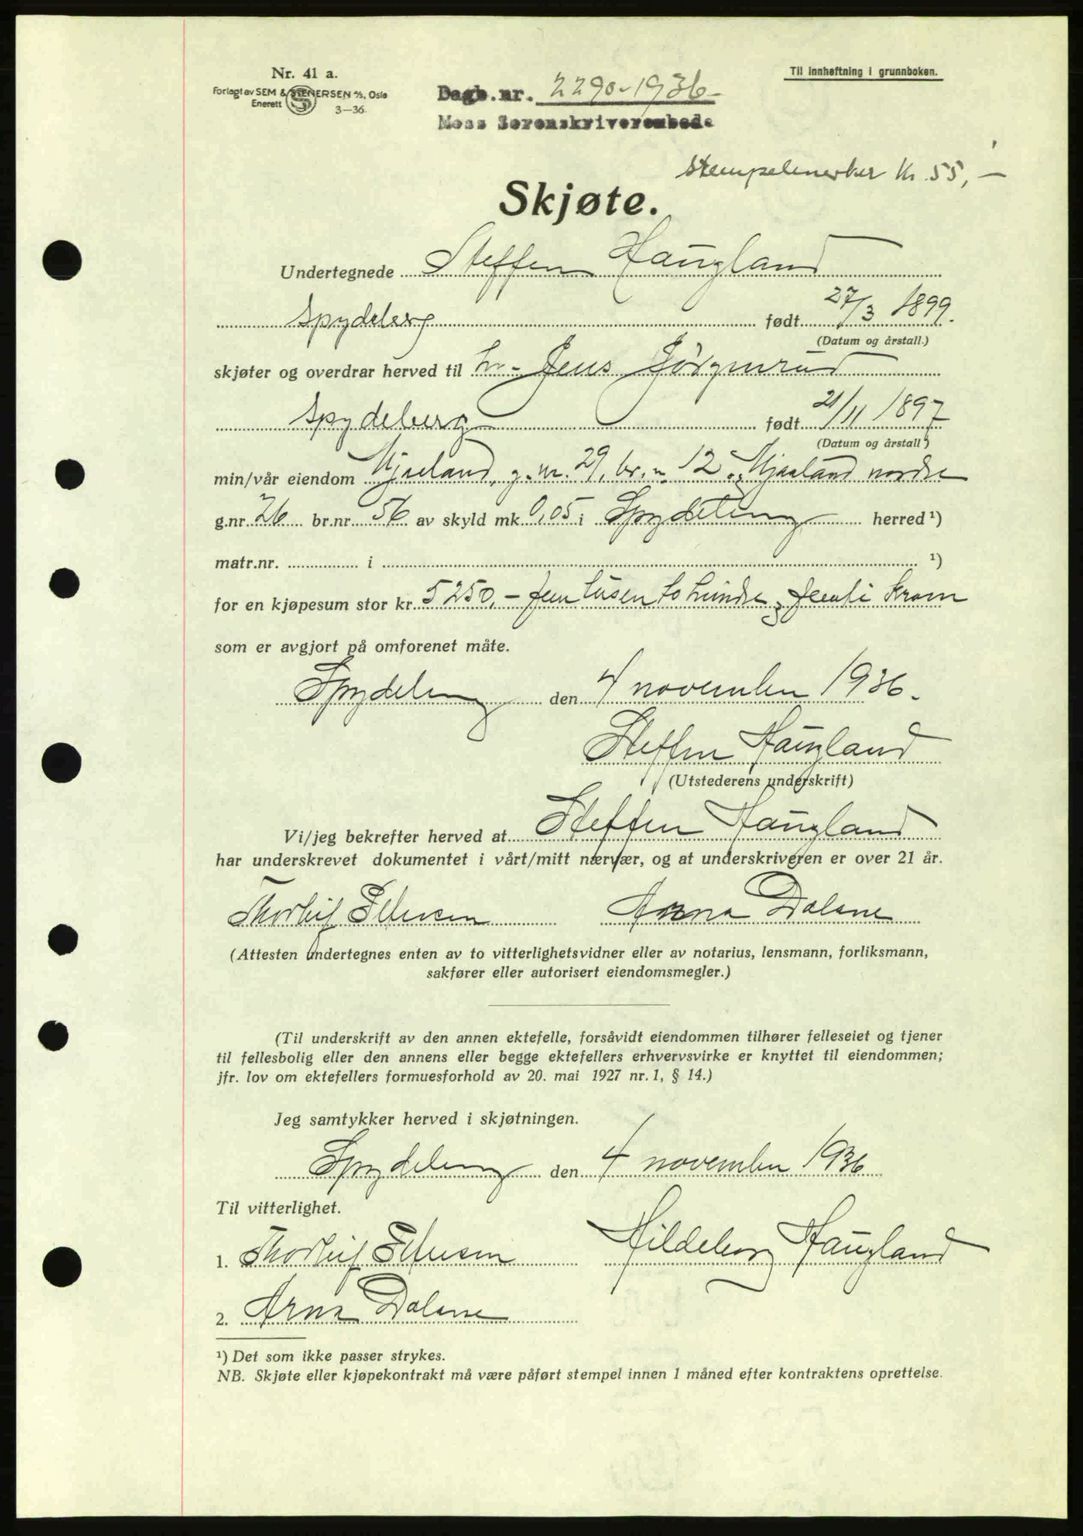 Nr. 41 a.
Forlagt av SEM & STENERSEN A/S, Oslo
Enerett
3—36
Til innheftning i grunnboken.
Dagb.nr. 2290-1936-
Moss Sorenskriverembede
Stempelmerker Kr. 55,-
Skjøte.
Undertegnede Steffen Haugland
Spydeberg født 27/3 1899.
(Datum og årstall.)
skjøter og overdrar herved til hr. Jens
Spydeberg født 21/11 1897
(Datum og årstall)
min/vår eiendom g.nr. 29, br.n 12 og nordre
g.nr. 26 br.nr. 56 av skyld mk. 0,05 i Spydeberg herred ¹)
matr.nr. i ¹)
for en kjøpesum stor kr. 5250,- fem tusen to hundre og femti kroner
som er avgjort på omforenet måte.
Spydeberg den 4 november 1936.
Steffen Haugland
(Utstederens underskrift)
Vi/jeg bekrefter herved at Steffen Haugland
har underskrevet dokumentet i vårt/mitt nærvær, og at underskriveren er over 21 år.
Thorleif Arna Dalane
(Attesten undertegnes enten av to vitterlighetsvidner eller av notarius, lensmann, forliksmann,
sakfører eller autorisert eiendomsmegler.)
(Til underskrift av den annen ektefelle, forsåvidt eiendommen tilhører felleseiet og tjener
til fellesbolig eller den annens eller begge ektefellers erhvervsvirke er knyttet til eiendommen;
jfr. lov om ektefellers formuesforhold av 20. mai 1927 nr. 1, § 14.)
Jeg samtykker herved i skjøtningen.
Spydeberg den 4 november 1936
Til vitterlighet.
1. Thorleif Hildeborg Haugland
2. Arna Dalane
¹) Det som ikke passer strykes.
NB. Skjøte eller kjøpekontrakt må være påført stempel innen 1 måned efter kontraktens oprettelse.